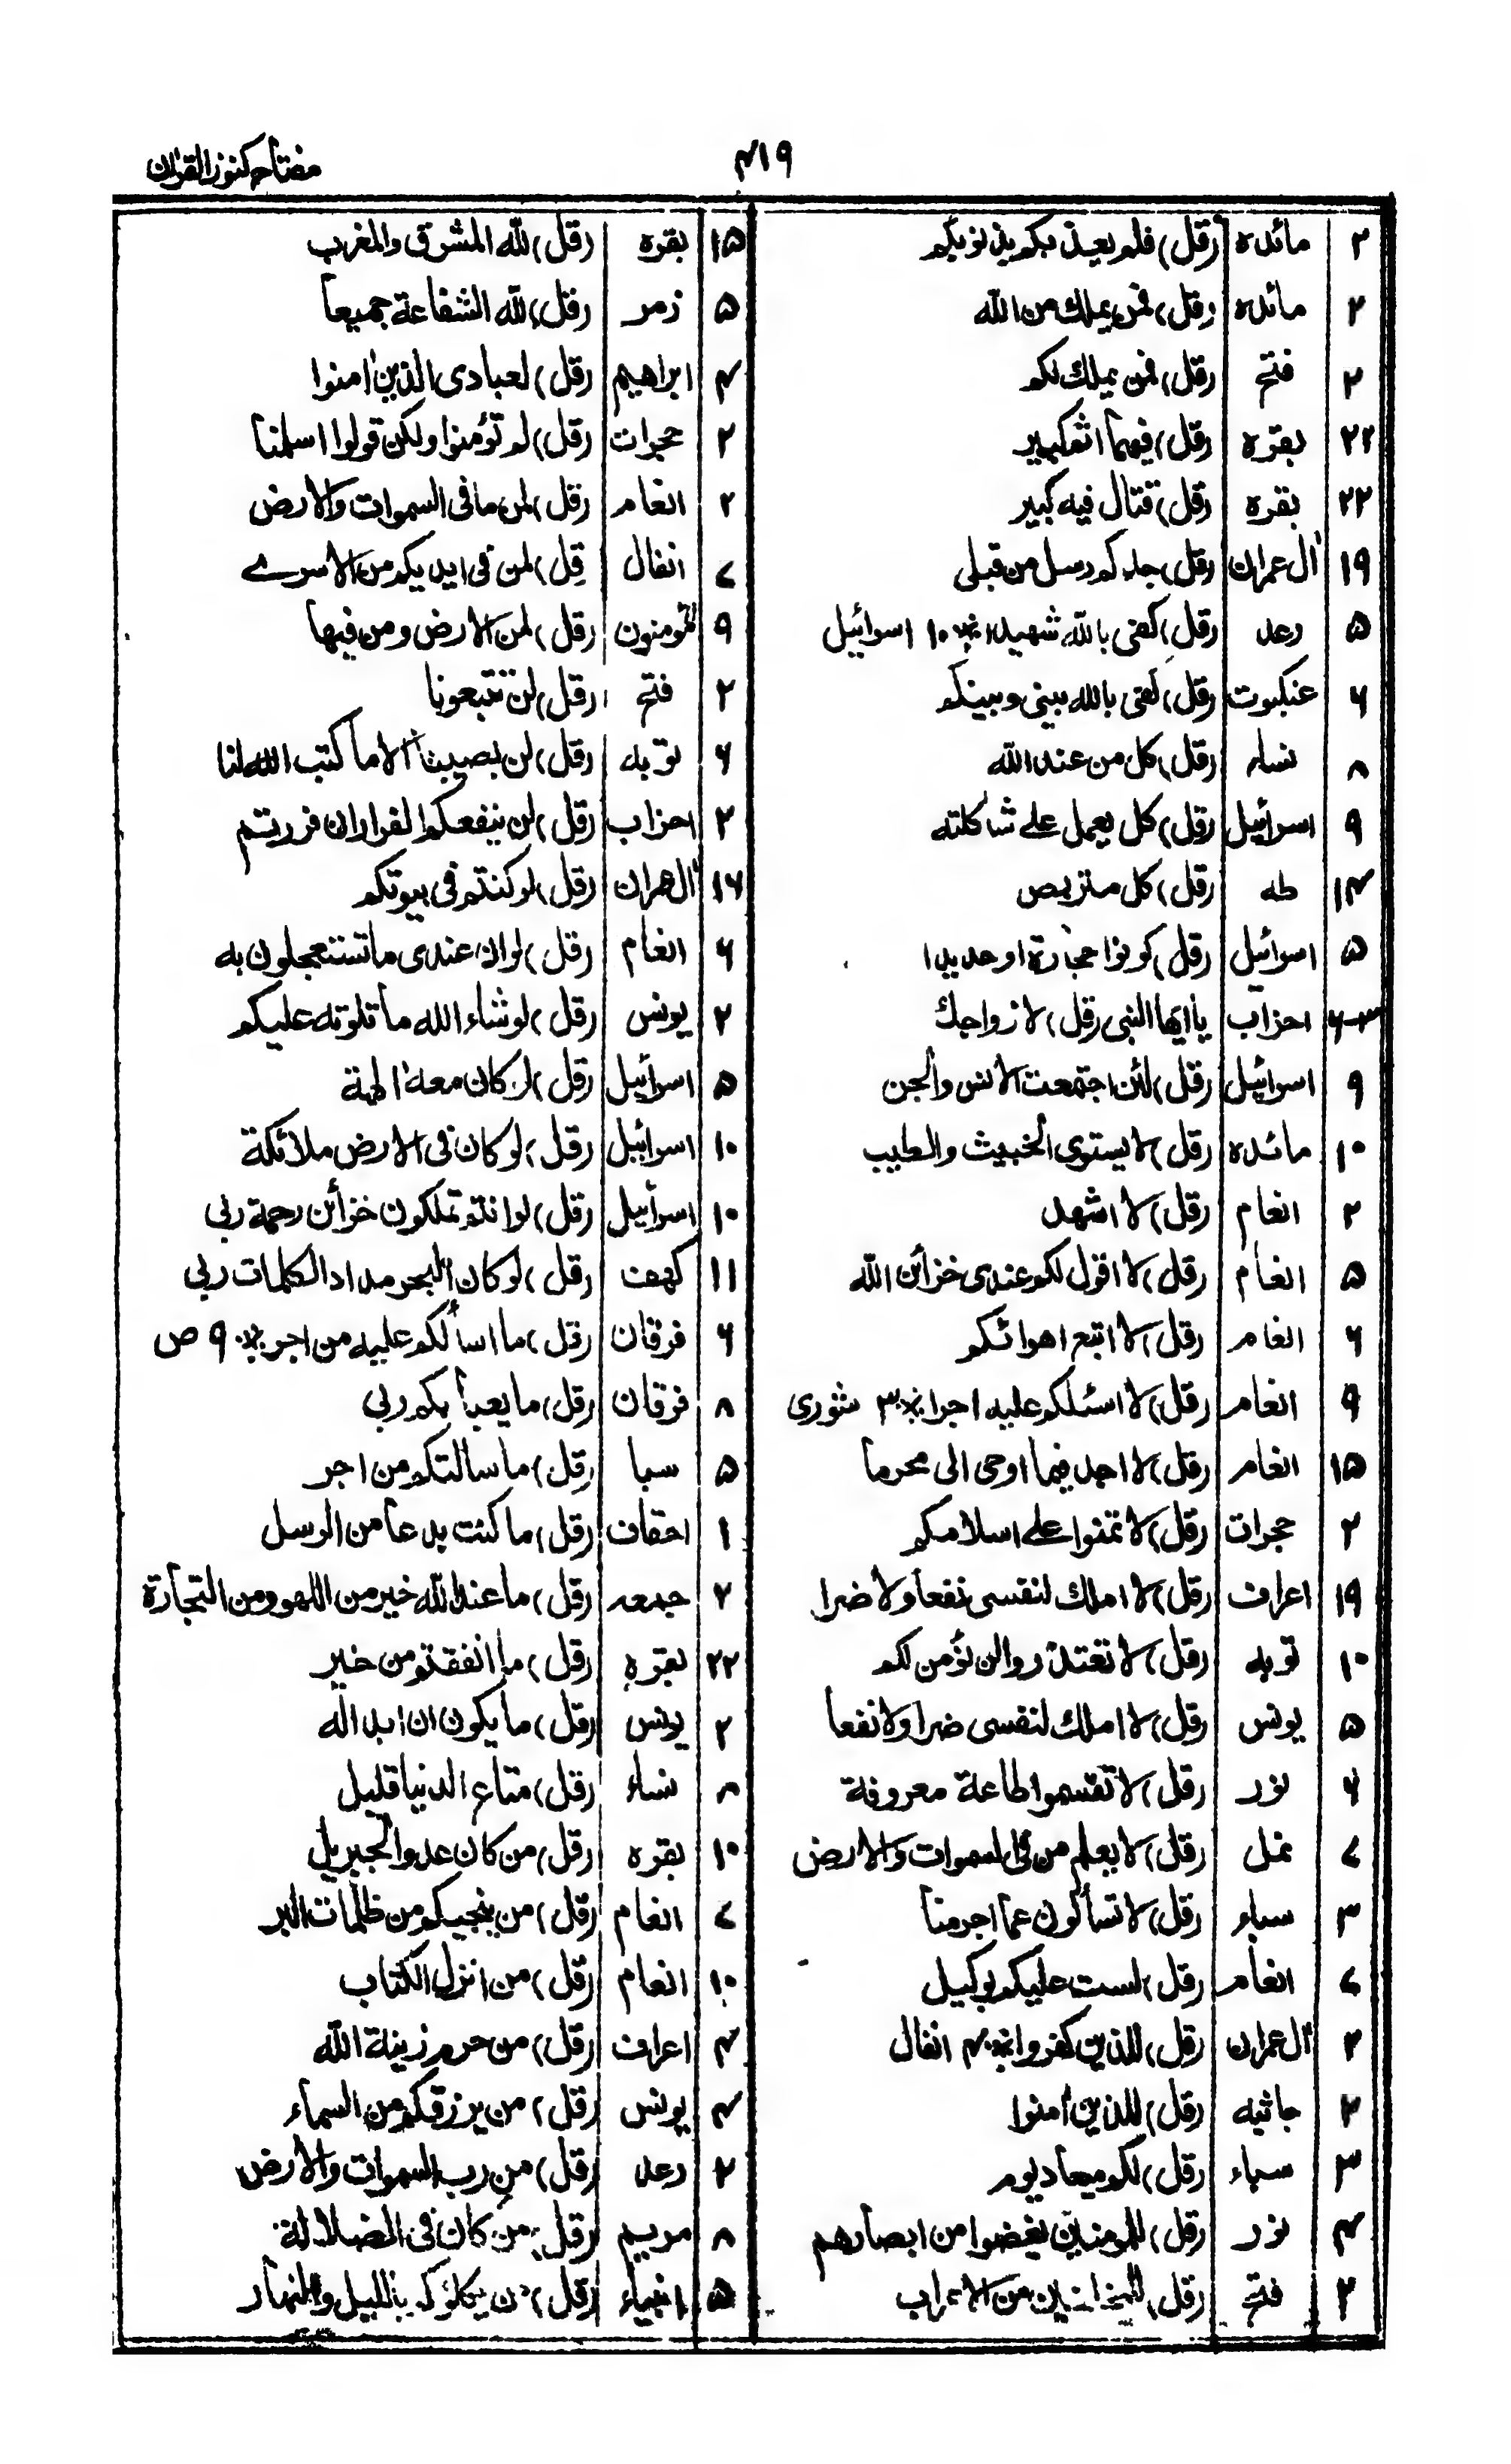 ۴۱۹
مفتاح كنوز القران
۳ مائده (قل) فلم يعذبكم بذنوبكم
۳ مائده (قل) فمن يملك من الله
۲ فتح (قل) فمن يملك لكم
۲۲ بقره (قل) فيهما اثم كبير
۲۲ بقره (قل) قتال فيه كبير
۱۹ آل عمران (قل) جاءكم رسل من قبلى
۵ رعد (قل) كفى بالله شهيدا ؞ ۱۰ اسرائيل
۶ عنكبوت (قل) كفى بالله بينى وبينكم
۸ نساء (قل) كل من عند الله
۹ اسرائيل (قل) كل يعمل على شاكلته
۱۴ طه (قل) كل متربص
۵ اسرائيل (قل) كونوا حجارة او حديدا
۳-۶ احزاب يا ايها النبى (قل) لازواجك
۹ اسرائيل (قل) لئن اجتمعت الانس والجن
۱۰ مائده (قل) لا يستوى الخبيث والطيب
۲ انعام (قل) لا اشهد
۵ انعام (قل) لا اقول لكم عندى خزائن الله
۶ انعام (قل) لا اتبع اهوائكم
۹ انعام (قل) لا اسئلكم عليه اجرا ؞ ۳ شورى
۱۵ انعام (قل) لا اجد فيما اوحى الى محرما
۲ حجرات (قل) لا تمنوا على اسلامكم
۱۹ اعراف (قل) لا املك لنفسى نفعا ولا ضرا
۱۰ توبه (قل) لا تعتذروا لن نؤمن لكم
۵ يونس (قل) لا املك لنفسى ضرا ولا نفعا
۶ نور (قل) لا تقسموا طاعة معروفة
۷ نمل (قل) لا يعلم من فى السموات والارض
۳ سباء (قل) لا تسألون عما اجرمنا
۷ انعام (قل) لست عليكم بوكيل
۲ آل عمران (قل) للذين كفروا ؞ ۴ انفال
۲ جاثيه (قل) للذين آمنوا
۳ سباء (قل) لكم ميعاد يوم
۴ نور (قل) للمومنين يغضوا من ابصارهم
۲ فتح (قل) للمخلفين من الاعراب
۱۵ بقره (قل) لله المشرق والمغرب
۵ زمر (قل) لله الشفاعة جميعا
۴ ابراهيم (قل) لعبادى الذين امنوا
۲ حجرات (قل) لم تؤمنوا ولكن قولوا اسلمنا
۲ انعام (قل) لمن ما فى السموات والارض
۷ انفال (قل) لمن فى ايديكم من الاسرے
۹ المومنون (قل) لمن الارض ومن فيها
۲ فتح (قل) لن تتبعونا
۶ توبه (قل) لن يصيبنا الا ما كتب الله لنا
۲ احزاب (قل) لن ينفعكم الفرار ان فررتم
۱۶ آل عمران (قل) لو كنتم فى بيوتكم
۶ انعام (قل) لو ان عندى ما تستعجلون به
۲ يونس (قل) لو شاء الله ما تلوته عليكم
۵ اسرائيل (قل) لو كان معه الهة
۱۰ اسرائيل (قل) لو كان فى الارض ملائكة
۱۰ اسرائيل (قل) لو انتم تملكون خزائن رحمة ربى
۱۱ كهف (قل) لو كان البحر مدادا لكلمات ربى
۶ فرقان (قل) ما اسألكم عليه من اجر ؞ ۹ ص
۸ فرقان (قل) ما يعبأ بكم ربى
۵ سبا (قل) ما سالتكم من اجر
۱ احقاف (قل) ما كنت بدعا من الرسل
۲ جمعه (قل) ما عند الله خير من اللهو ومن التجارة
۲۲ بقره (قل) ما انفقتم من خير
۲ يونس (قل) ما يكون ان ابدله
۸ نساء (قل) متاع الدنيا قليل
۱۰ بقره (قل) من كان عدوا لجبريل
۷ انعام (قل) من ينجيكم من ظلمات البر
۱۰ انعام (قل) من انزل الكتاب
۴ اعراف (قل) من حرم زينة الله
۴ يونس (قل) من يرزقكم من السماء
۲ رعد (قل) من رب السموات والارض
۸ مريم (قل) من كان فى الضلالة
۵ انبياء (قل) من يكلؤكم بالليل والنهار